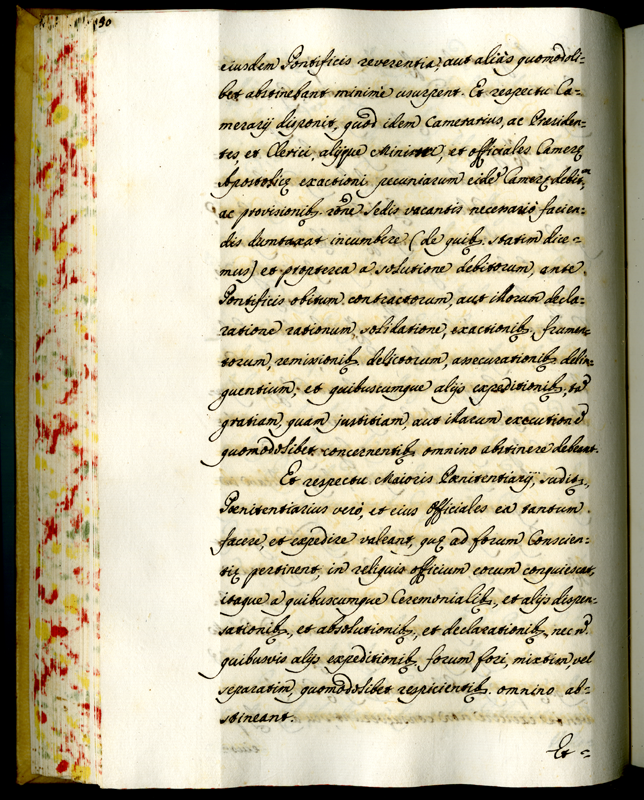 90
eiusdem Pontificis reverentia, aut aliàs quomodoli=
bet abstinebant minimè usurpent. Et respectu Ca=
merarij disponit, quod idem Camerarius, ac Presiden=
tes, et Clerici, alijque Ministri, et officiales Camerę
Apostolicę exactioni pecuniarum eidẽ Camerę debit,
ac provisionib. rõne Sedis vacantis necessariò facien=
dis dumtaxat incumbere (de quib. statim dice=
mus) et propterea a solutione debitorum, ante
Pontificis obitum contractorum, aut illorum decla=
ratione rationum, solidatione, exactionib. frumen=
torum, remissionib. delictorum, assecurationib. delin=
quentium, et quibuscumque alijs expeditionib., tã
gratiam, quam justitiam, aut illarum executionẽ
quomodolibet concernentib. omnino abstinere debeant.
Et respectu Maioris Pœnitentiarij, subdit,
Pœnitentiarius verò, et eius Officiales ea tantum
facere, et expedire valeant, quę ad forum Conscien=
tię pertinent, in reliquis officium eorum conquiescat,
itaque a quibuscumque Ceremonialib., et alijs dispen=
sationib., et absolutionib., et declarationib., nec ñ
quibusvis alijs expeditionib. forum fori mixtim, vel
separatim quomodolibet respicientib. omnino ab=
stineant.
Et =